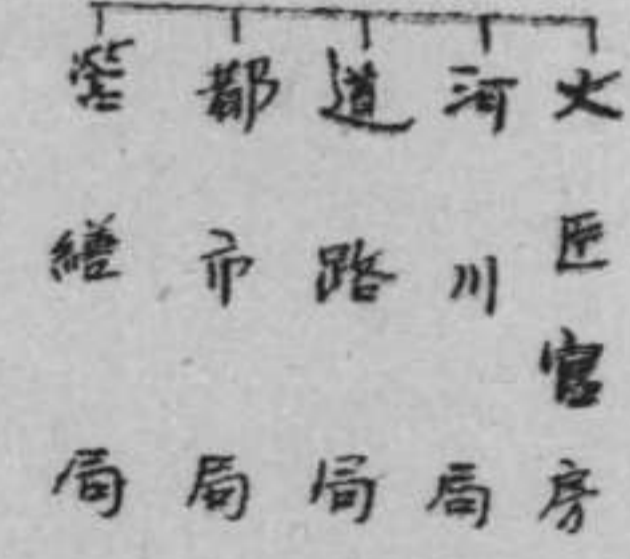 大臣官房
河川局
道路局
都市局
營繕局